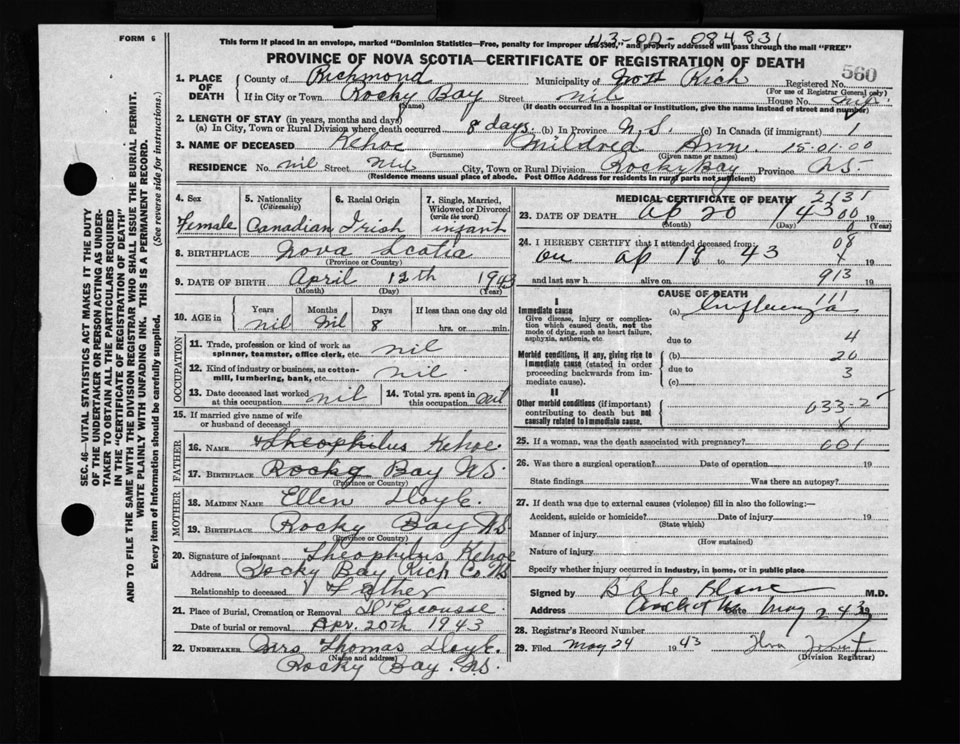 43-02-084831
FORM 6
This form if placed in an envelope, marked "Dominion Statistics—Free, penalty for improper use $300," and properly addressed will pass through the mail "FREE"
PROVINCE OF NOVA SCOTIA—CERTIFICATE OF REGISTRATION OF DEATH
560
1. PLACE OF DEATH
County of Richmond Municipality of Rich Registered No.
(For use of Registrar General only)
If in City or Town Rocky Bay Street nil House No.
(Name) (If death occurred in a hospital or institution, give the name instead of street and number)
2. LENGTH OF STAY (in years, months and days)
(a) In City, Town or Rural Division where death occurred 8 days (b) In Province N.S. (c) In Canada (if immigrant) 1
3. NAME OF DECEASED Kehoe Mildred Ann 15-01-00
(Surname) (Given name or names)
RESIDENCE No. nil Street nil City, Town or Rural Division Rocky Bay Province NS.
(Residence means usual place of abode. Post Office Address for residents in rural parts not sufficient)
4. Sex Female
5. Nationality (Citizenship) Canadian
6. Racial Origin Irish
7. Single, Married, Widowed or Divorced (write the word) infant
8. BIRTHPLACE Nova Scotia
(Province or Country)
9. DATE OF BIRTH April 12th 1943
(Month) (Day) (Year)
10. AGE in Years nil Months Nil Days 8 If less than one day old hrs. or min.
OCCUPATION
11. Trade, profession or kind of work as spinner, teamster, office clerk, etc. nil
12. Kind of industry or business, as cotton-mill, lumbering, bank, etc. nil
13. Date deceased last worked at this occupation nil
14. Total yrs. spent in this occupation
15. If married give name of wife or husband of deceased
FATHER
16. NAME Theophilus Kehoe
17. BIRTHPLACE Rocky Bay NS.
(Province or Country)
MOTHER
18. MAIDEN NAME Ellen Doyle
19. BIRTHPLACE Rocky Bay NS
(Province or Country)
20. Signature of informant Theophilus Kehoe
Address Rocky Bay Rich Co. NS
Relationship to deceased Father
21. Place of Burial, Cremation or Removal D'Escousse
Date of burial or removal Apr. 20th 1943
22. UNDERTAKER Mrs Thomas Doyle
(Name and address)
Rocky Bay. NS.
MEDICAL CERTIFICATE OF DEATH
23. DATE OF DEATH Ap 20 43 19
(Month) (Day) (Year)
24. I HEREBY CERTIFY that I attended deceased from:
on Ap 19 to 43 19
and last saw h alive on 19
913
CAUSE OF DEATH
I
Immediate cause
Give disease, injury or complication which caused death, not the mode of dying, such as heart failure, asphyxia, asthenia, etc.
(a) Influenza
due to 4
Morbid conditions, if any, giving rise to immediate cause (stated in order proceeding backwards from immediate cause).
(b) 20
due to 3
(c)
II
Other morbid conditions (if important) contributing to death but not causally related to immediate cause.
033-2
25. If a woman, was the death associated with pregnancy? 001
26. Was there a surgical operation? Date of operation 19
State findings Was there an autopsy?
27. If death was due to external causes (violence) fill in also the following:
Accident, suicide or homicide? Date of injury 19
(State which)
Manner of injury
(How sustained)
Nature of injury
Specify whether injury occurred in industry, in home, or in public place
Signed by M.D.
Address Date May 2 43 19
28. Registrar's Record Number
29. Filed May 24 1943
(Division Registrar)
SEC. 46—VITAL STATISTICS ACT MAKES IT THE DUTY OF THE UNDERTAKER OR PERSON ACTING AS UNDERTAKER TO OBTAIN ALL THE PARTICULARS REQUIRED IN THE "CERTIFICATE OF REGISTRATION OF DEATH"
AND TO FILE THE SAME WITH THE DIVISION REGISTRAR WHO SHALL ISSUE THE BURIAL PERMIT.
WRITE PLAINLY WITH UNFADING INK. THIS IS A PERMANENT RECORD.
Every item of Information should be carefully supplied. (See reverse side for instructions.)